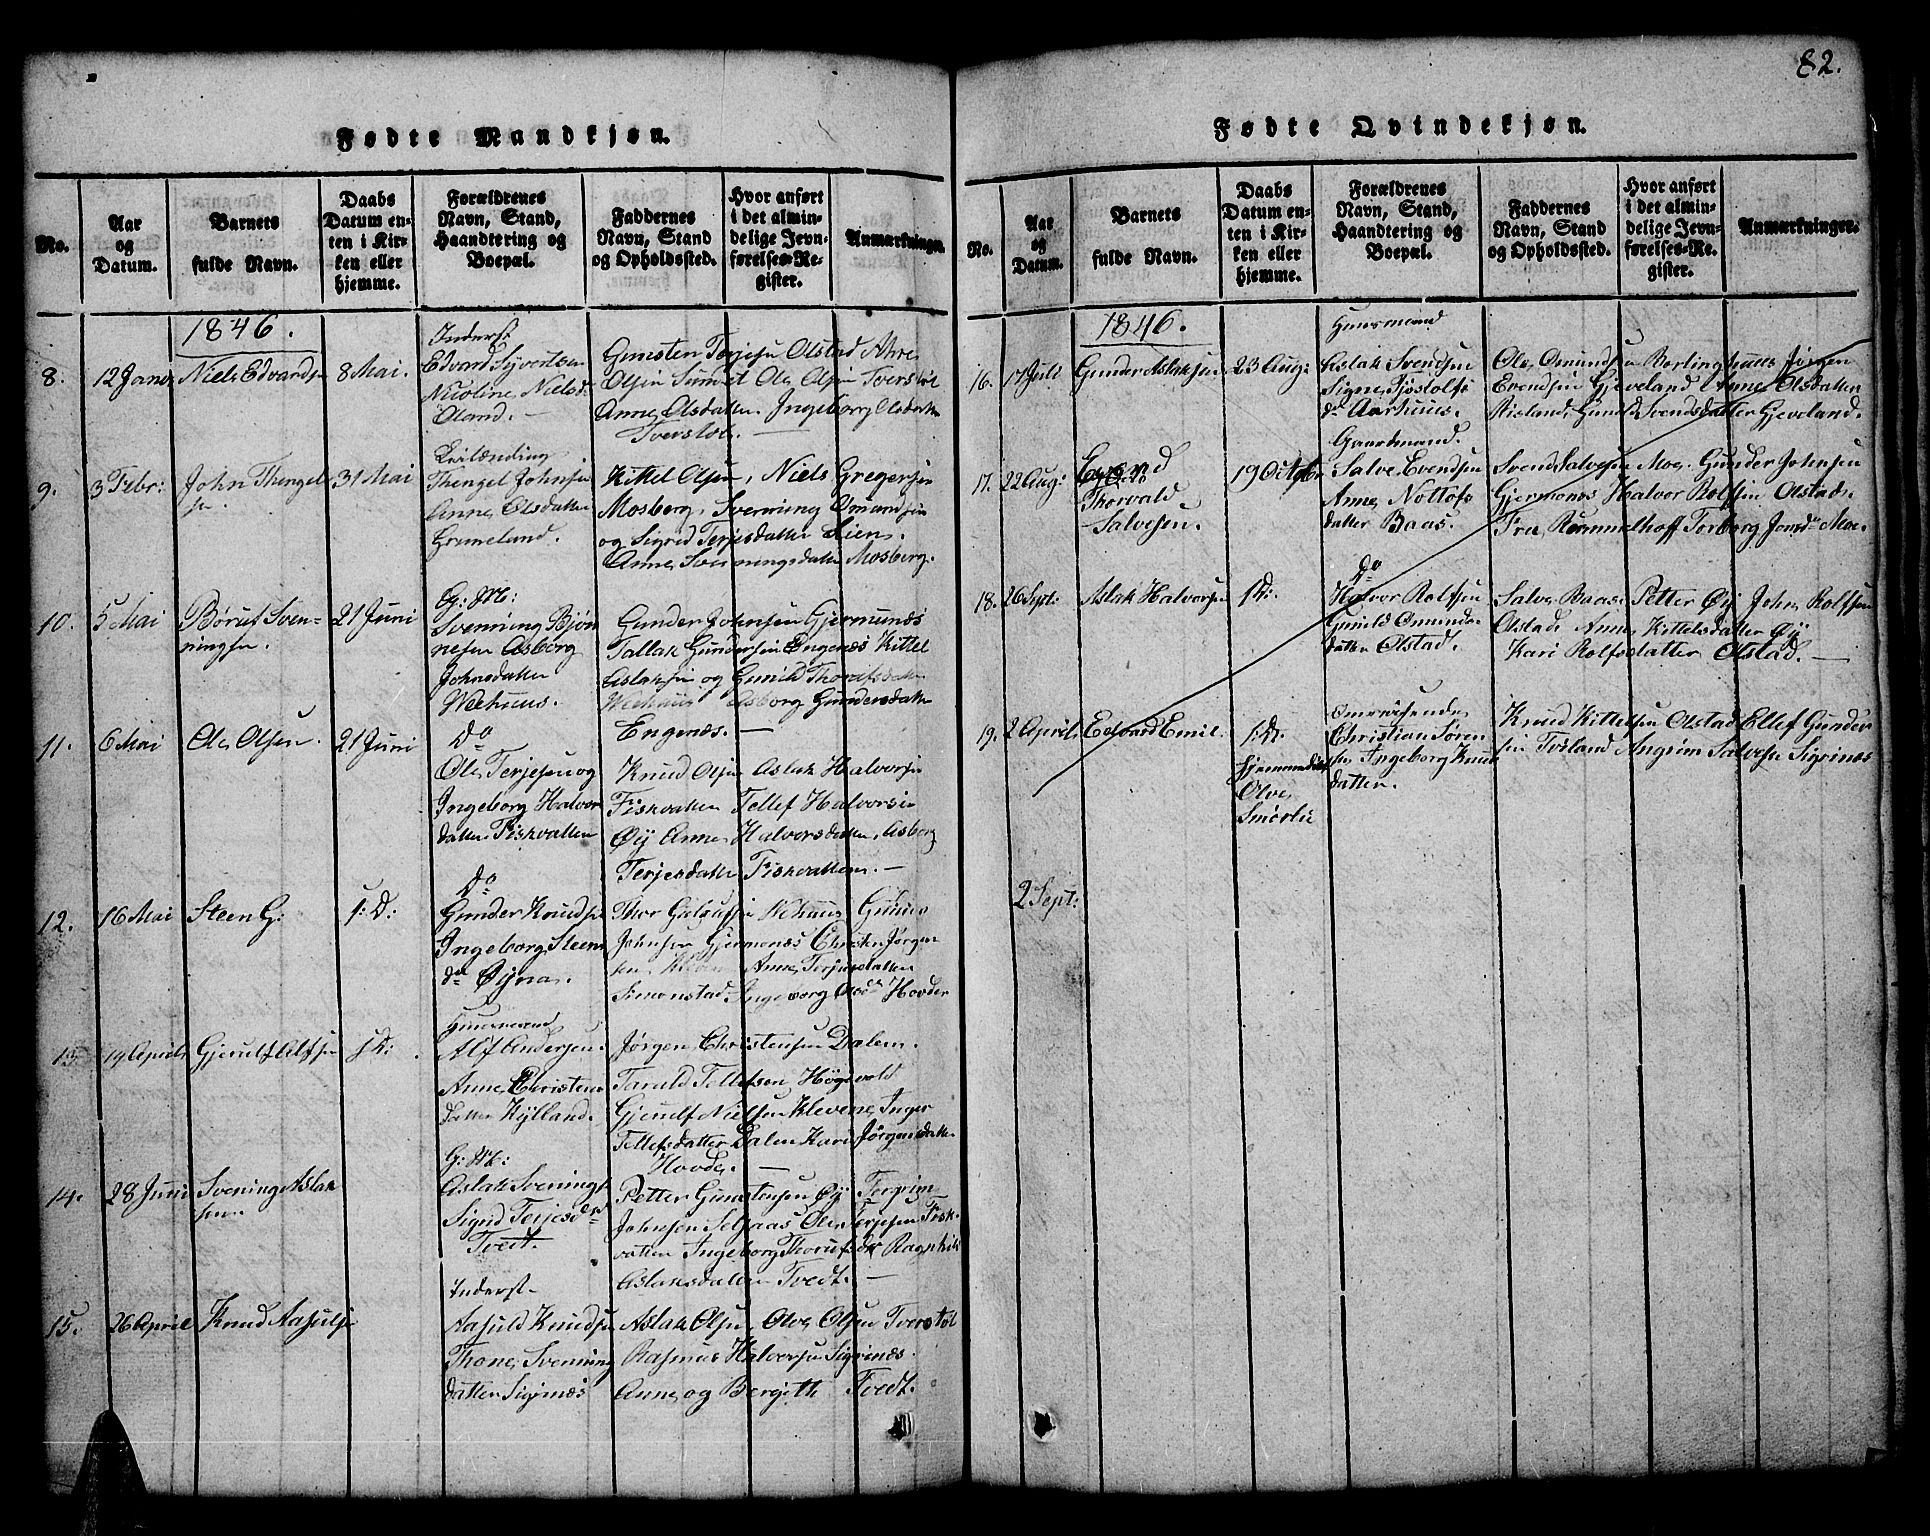 82.
Fødte Mandkjøn.
No.
Aar
og
Datum.
Barnets
fulde Navn.
Daabs
Datum en-
ten i Kir-
ken eller
hjemme.
Forældrenes
Navn, Stand,
Haandtering og
Boepæl.
Faddernes
Navn, Stand
og Opholdssted.
Hvor anført
i det almin-
delige Jevn-
førelses-Re-
gister.
Anmærkninger.
1846.
8.
12 Janr
Niels Edvardsen
8 Mai.
Inderst
Edvard Syvertsen
Nicoline Niels
Øland.
Gunsten Terjesen Olstad
Olsen Ole Olsen Tverstøl
Anne Olsdatter Ingeborg Olsdatter
Tverstøl.
9.
3 Febr:
John Thengel
sen.
31 Mai
Thengel Johnsen
Anne Olsdatter
Grimeland.
Kittel Olsen, Niels Gregersen
Mosberg, Svenning Omundsen
og Sigrid Terjesdatter Lien.
Anne Svenningsdatter Mosberg.
10.
5 Mai
Børut Sven-
ningsen.
21 Juni
G: M:
Svenning Bjøn
nesen Asborg
Johnsdatter
Weehuus.
Gunder Johnsen Gjermunds
Tallak Gundersen Engenæs Kittel
Aslaksen og Gunild Thorufsdatter
Weehuus Asborg Gundersdatter
Engenæs.
11.
6 Mai
Ole Olsen.
21 Juni
Do
Ole Terjesen og
Ingeborg Halvor
datter Fiskvatten
Knud Olsen Aslak Halvorsen
Fiskvatten Tellef Halvorsen
Øy Anne Halvorsdatter, Asberg
Terjesdatter Fiskvatten.
12.
16 Mai
Steen G:
1: D:
Do
Gunder Knudsen
Ingeborg Steen
dr Øyna.
Thor Wehuus
Johnsen Gjermonæs Christen Jørgen
sen Kleven Anne Terjesdatter
Simonstad, Ingeborg Hovder
13
19 April
Gjerulf Alfsen
1 D:
Huusmand
Alf Andersen
Anne Christens
datter Kylland.
Jørgen Christensen Dalem.
Tarald Tellefsen Høgevold
Gjerulf Nielsen Klevene, Inger
Tellefsdatter Dalen Kari Jørgensdatter
Hovde.
14.
28 Juni
Svening Aslak
sen.
G: M:
Aslak Svenings
Sigrid Terjesdr
Tvedt.
Petter Gunstensen Øy Torgrim
Johnsen Seljaas Ole Terjesen Fisk-
vatten Ingeborg Thorufsdr Ragnhild
Aslaksdatter Tvedt.
15.
26 April
Knud Aasulsen
Inderst
Aasuld Knudsen
Thone Svenning
datter Sigrinæs
Aslak Olsen, Olve Olsen Tverstøl
Rasmus Halvorsen Sigrinæs.
Anne og Bergith Tvedt.
Fødte Qvindekjøn.
No.
Aar
og
Datum.
Barnets
fulde Navn.
Daabs
Datum en-
ten i Kir-
ken eller
hjemme.
Forældrenes
Navn, Stand,
Haandtering og
Boepæl.
Faddernes
Navn, Stand
og Opholdssted.
Hvor anført
i det almin-
delige Jevn-
førelses-Re-
gister.
Anmærkninger.
1846.
16.
17 Juli
Gunder Aslaksen
23 Aug:
Huusmand
Aslak Svendsen
Signe Tjostolfs
dr Aarhuus.
Ole Omundsen Berlinghuus Jørgen
Evendsen Gjeveland Anne Olsdatter
Risland, Gunild Svendsdatter Gjeveland.
17.
22 Aug:
Thorvald
Salvesen.
19 October
Gaardmand.
Salve Evendsen
Anne Nottofs
datter Baas.
Svend Salvesen Moe. Gunder Johnsen
Gjermonæs Halvor Rolfsen Olstad.
Fru Rummelhoff Torborg Jonsdr Moe.
18.
26 Sept:
Aslak Halvorsen
1 D:
Do
Halvor Rolfsen
Gunild Omunds
datter Olstad.
Salve Baas Petter Øy John Rolfsen
Olstad Anne Kittelsdatter Øy
Kari Rolfsdatter Olstad.
19.
2 April.
Edvard Emil.
1: D.
hjemmedøbt
Olve
Smørlie
Omreisende
Christian Søren
sen Ingeborg Knuds
datter.
Knud Kittelsen Olstad Ellef Gunder
sen Tveland Angrim Salvesen Sigrinæs
2 Sept: